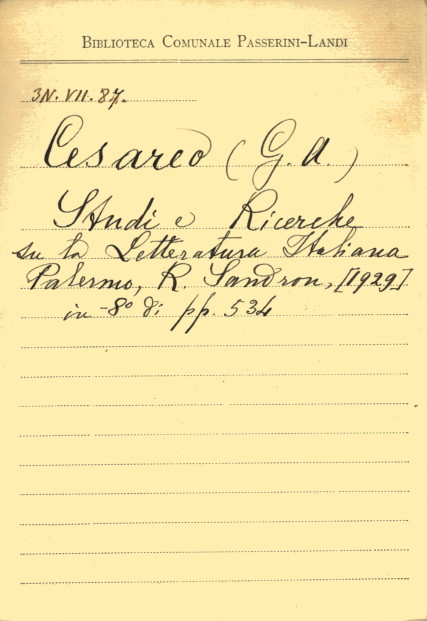 BIBLIOTECA COMUNALE PASSERINI-LANDI
3N. VII. 87.
Cesareo (G. A.)
Studi e Ricerche
su la Letteratura Italiana
Palermo, R. Sandron, [1929]
in-8º di pp. 534